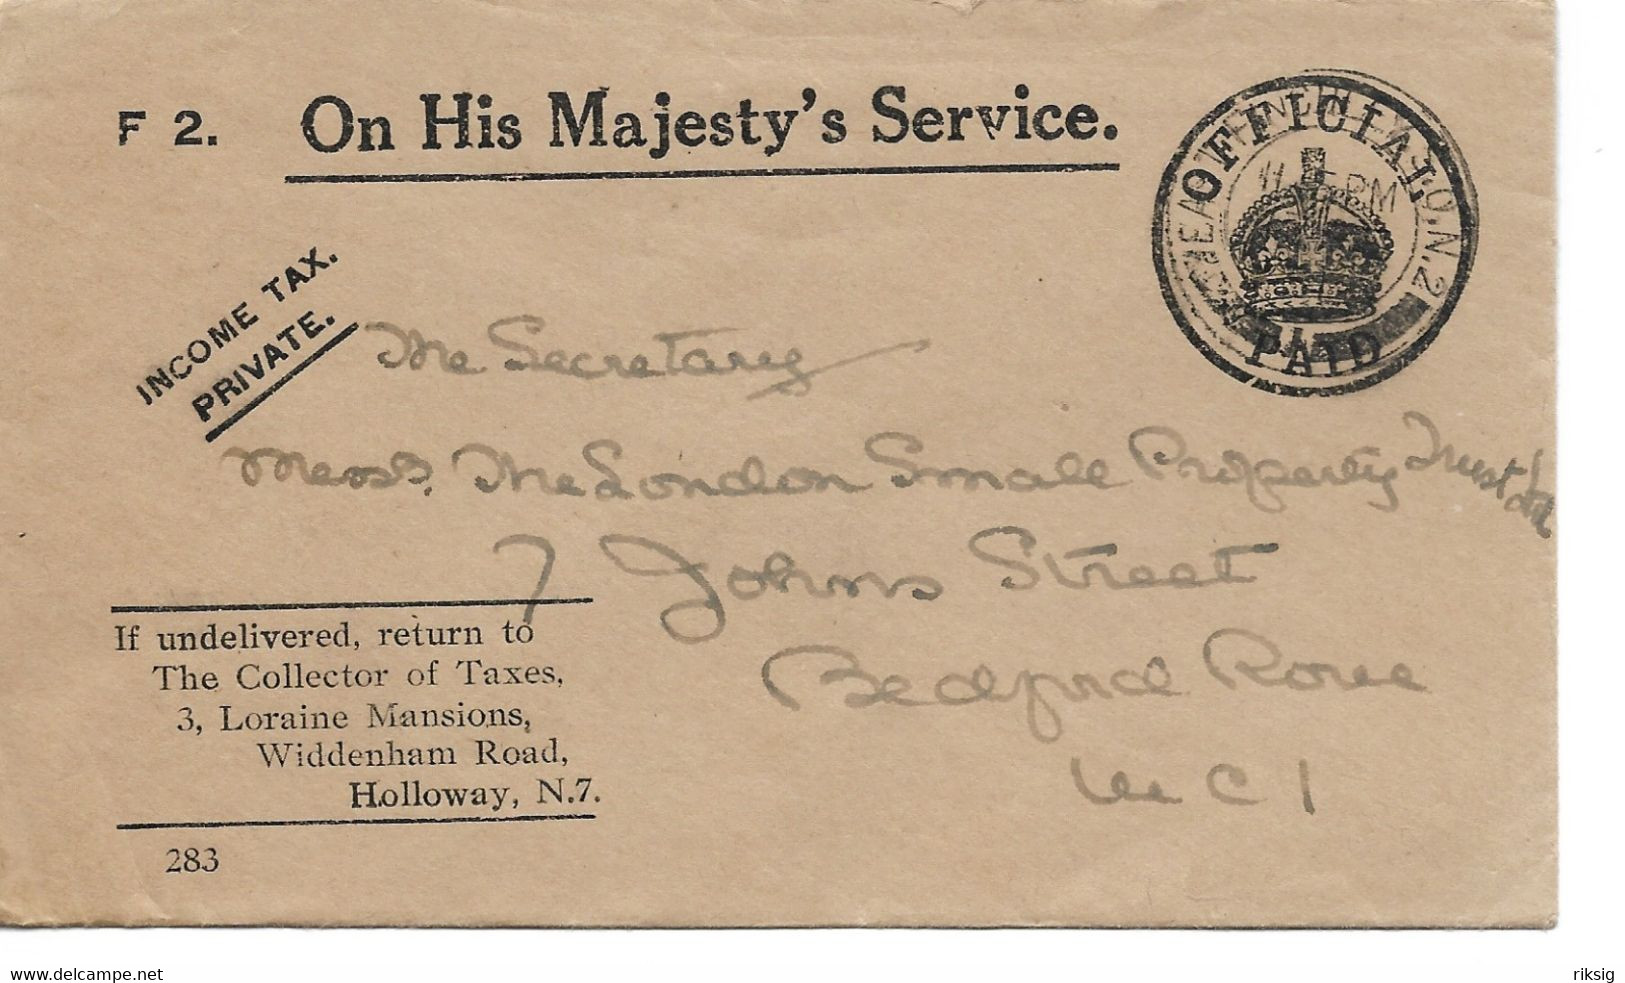 F 2.  On His Majesty's Service.
OFFICIAL
PM
N.2
PAID
INCOME TAX.
PRIVATE.
The Secretary
Messrs. The London Small Property Trust Ltd
7 Johns Street
Bedford Rowe
WC1
If undelivered, return to
The Collector of Taxes,
3, Loraine Mansions,
Widdenham Road,
Holloway, N.7.
283
www.delcampe.net
riksig